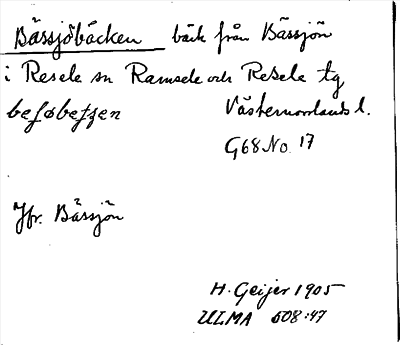 Bässjöbäcken bäck från Bässjön
i Resele sn Ramsele och Resele tg
Västernorrlands l.
G68 No. 17
Jfr. Bässjön
H. Geijer 1905
ULMA 608:47